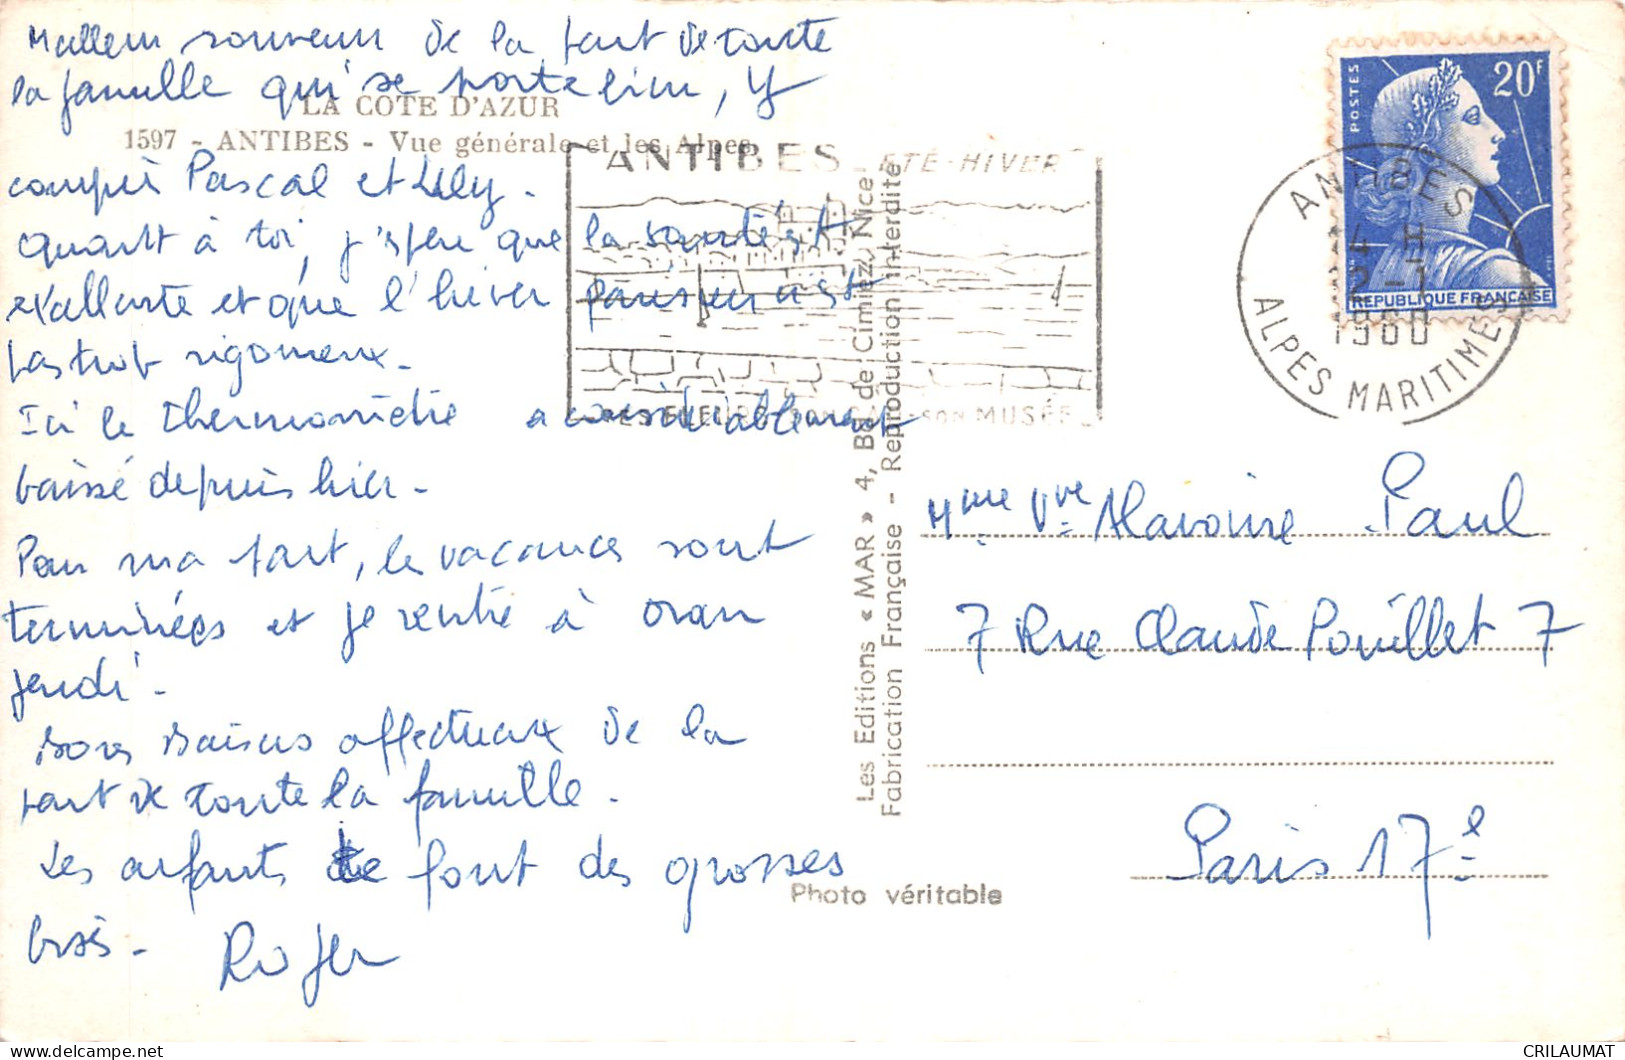 Meilleur souvenir de la part de toute
la famille qui se porte bien, y
LA COTE D'AZUR
1597 - ANTIBES - Vue générale et les Alpes
compris Pascal et Lily.
Quant à toi, j'espère que la santé est
excellente et que l'hiver parisien n'est
pas trop rigoureux.
Ici le thermomètre a considérablement
baissé depuis hier.
Pour ma part, les vacances sont
terminées et je rentre à Oran
jeudi.
Bons baisers affectueux de la
part de toute la famille.
Les enfants te font des grosses
bises.
Roger
ANTIBES ÉTÉ-HIVER
SES FLEURS SON MUSÉE
Les Editions « MAR » 4, Bd de Cimiez, Nice
Fabrication Française - Reproduction interdite
Photo véritable
POSTES
20F
REPUBLIQUE FRANÇAISE
ANTIBES
4 H
2-1
1960
ALPES MARITIMES
Mme Vve Paul
7 Rue Claude Pouillet 7
Paris 17e
CRILAUMAT